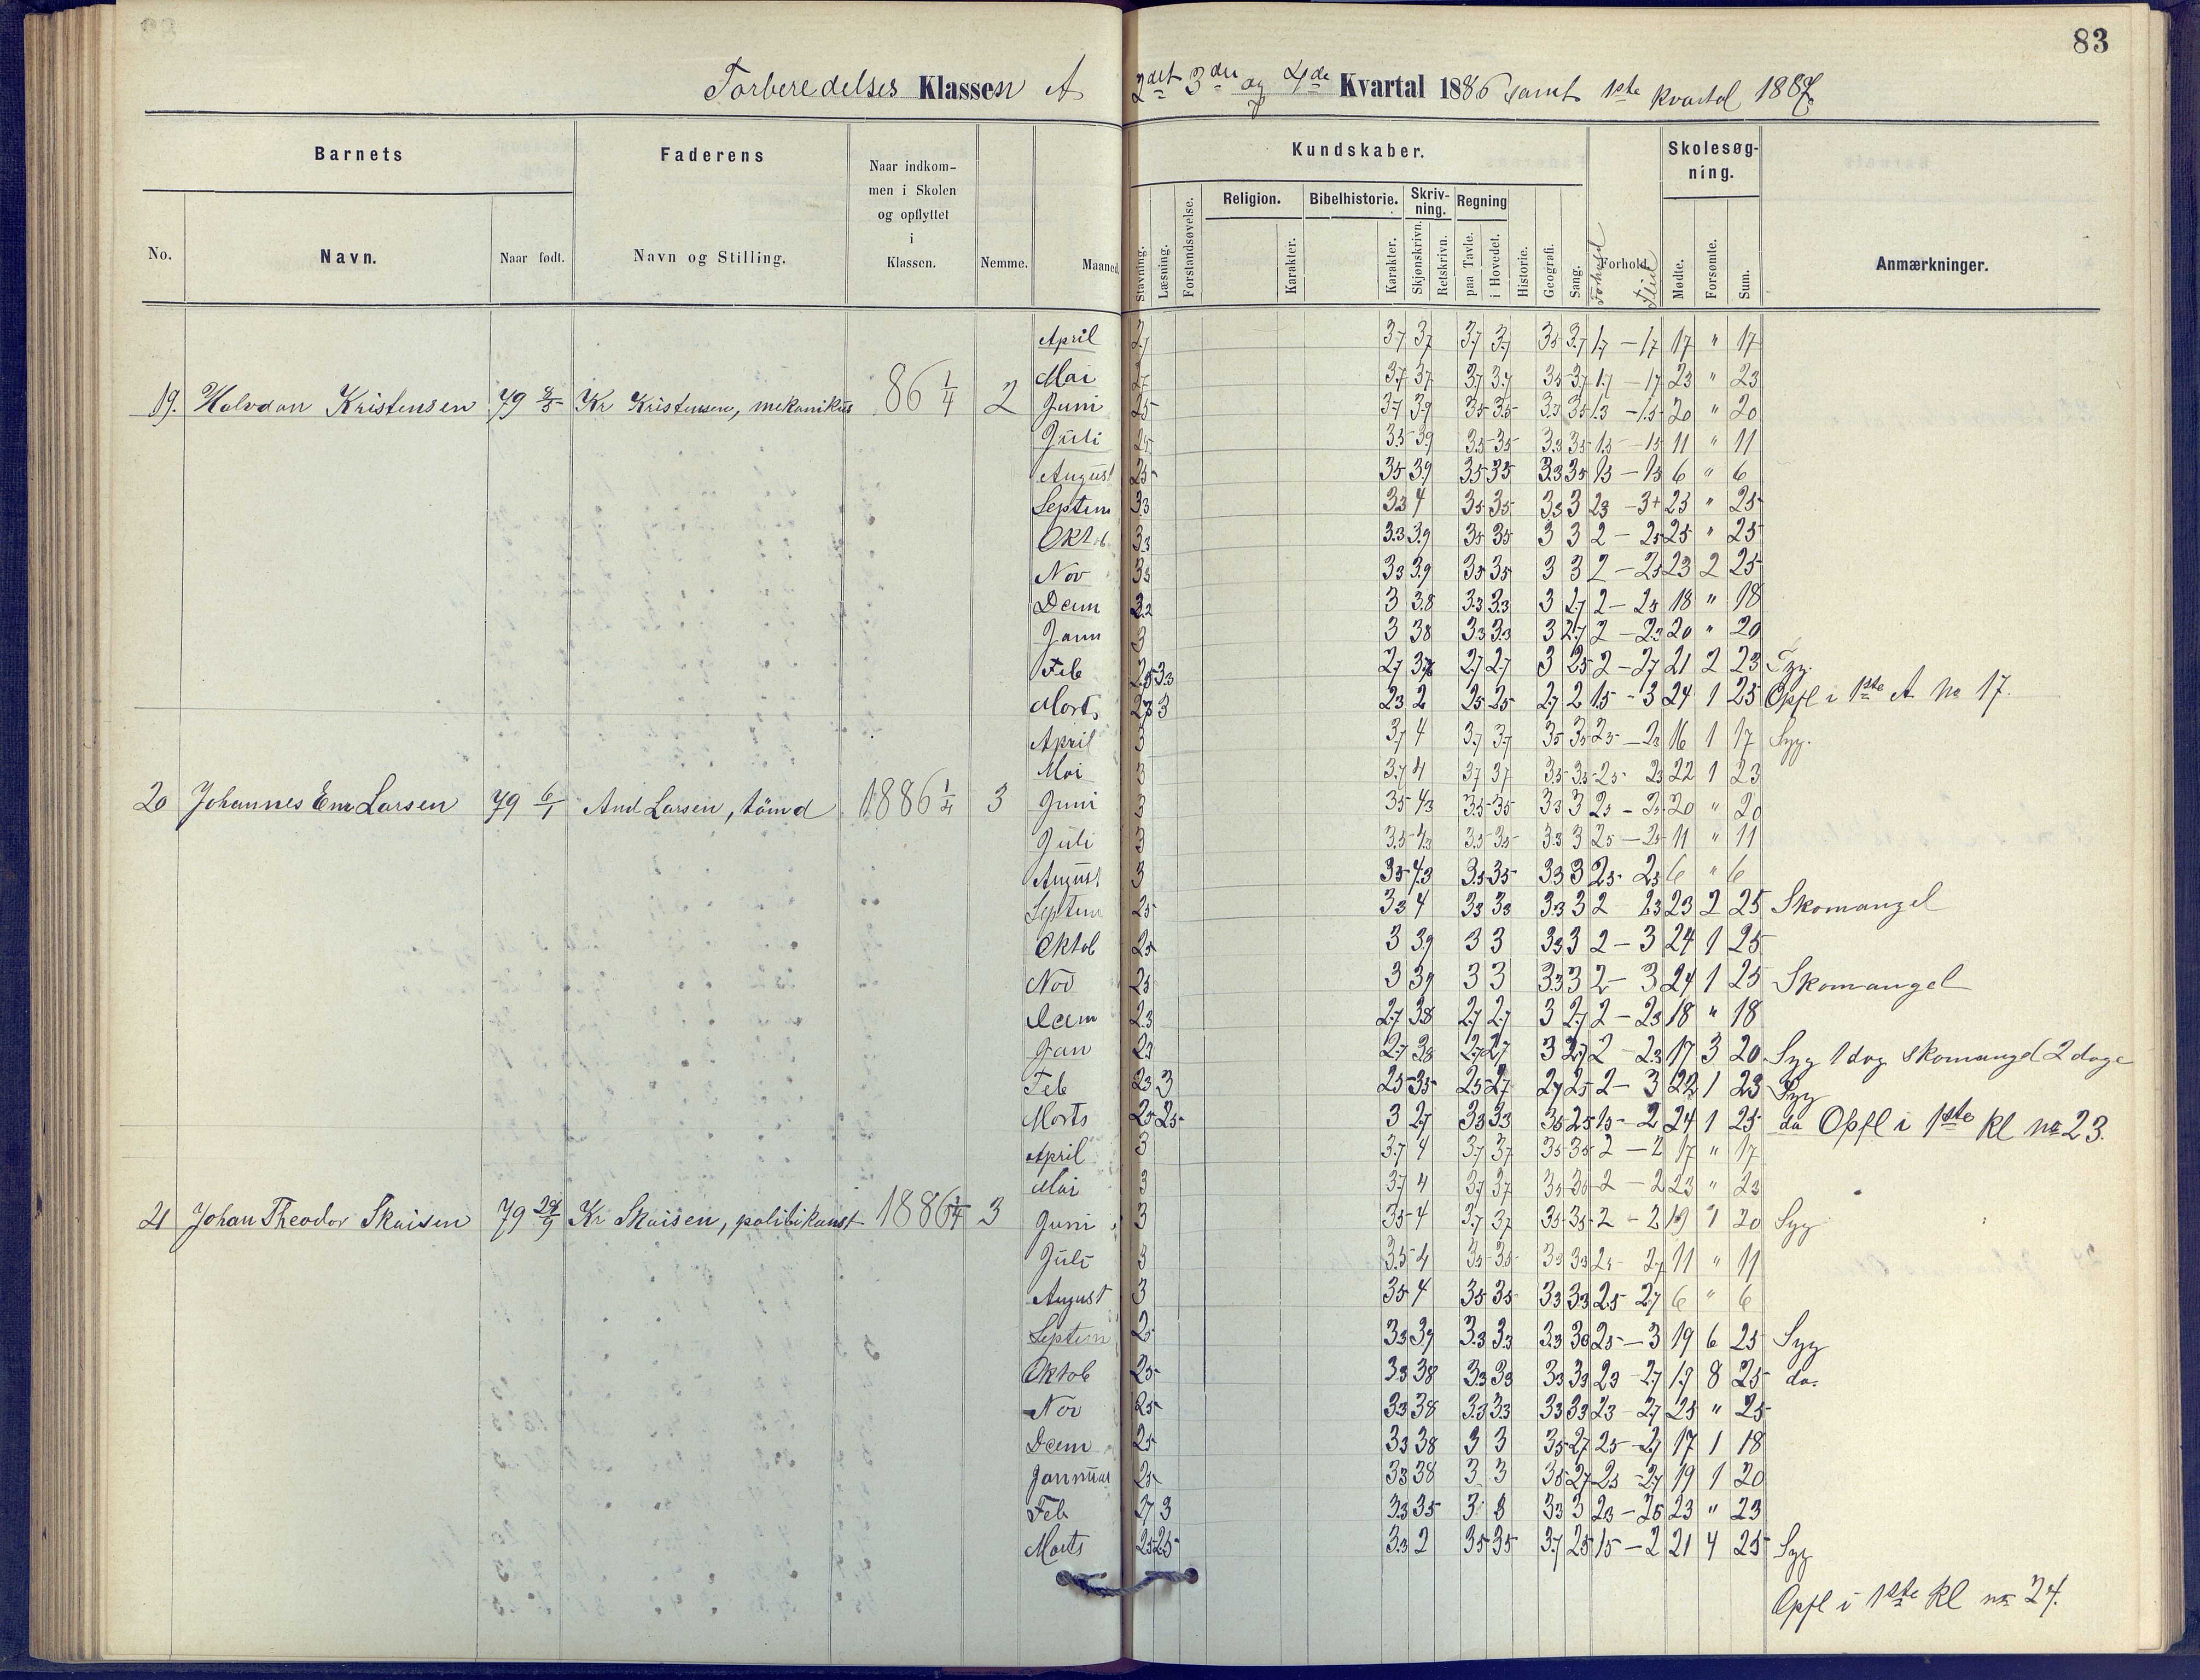 83
Forberedelses Klassen A 2det 3die og 4de Kvartal 1886 samt 1ste Kvartal 1887
Barnets Faderens Naar indkom-men i Skolen og opflyttet i Klassen. Nemme. Maaned Kundskaber. Forhold. Skolesøg-ning. Anmærkninger.
No. Navn. Naar født. Navn og Stilling.
Stavning. Læsning. Forstandsøvelse. Religion. Karakter. Bibelhistorie. Karakter. Skriv-ning. Skjønskrivn. Retskrivn. Regning paa Tavle. i Hovedet. Historie. Geografi. Sang. Forhold Flid Mødte. Forsømte. Sum.
April 2.7 3.7 3.7 3.7 3.7 3.5 3.7 1.7 — 1.7 17 " 17
Mai 2.7 3.7 3.7 3.7 3.7 3.5 3.7 1.7 — 1.7 23 " 23
19. Halvdan Kristensen 79 Kr Kristensen, mekanikus 86 1/4 2 Juni 2.5 3.7 3.9 3.5 3.5 3.3 3.5 1.3 — 1.5 20 " 20
Juli 2.5 3.5 3.9 3.5 3.5 3.3 3.5 1.5 — 1.5 11 " 11
August 2.5 3.5 3.9 3.5 3.5 3.3 3.5 1.5 — 1.5 6 " 6
Septem 3.3 3.3 4 3.5 3.5 3.3 3 2.3 — 3+ 25 " 25
Oktob 3.3 3.3 3.9 3.5 3.5 3 3 2 — 2.5 25 " 25
Nov 3.3 3.3 3.9 3.5 3.5 3 3 2 — 2.5 23 2 25
Decm 3.2 3 3.8 3.3 3.3 3 2.7 2 — 2.3 18 " 18
Janu 3 3 3.8 3.3 3.3 3 2.7 2 — 2.3 20 " 20
Feb 2.5 3.3 2.7 3.7 2.7 2.7 3 2.5 2 — 2.7 21 2 23 Syg.
Marts 2.3 3 2.3 2 2.5 2.5 2.7 2 1.5 - 3 24 1 25 Opfl i 1ste A No 17.
April 3 3.7 4 3.7 3.7 3.5 3.5 2.5 — 2.3 16 1 17 Syg.
Mai 3 3.7 4 3.7 3.7 3.5 3.5 2.5 2.3 22 1 23
20 Johannes Em Larsen 79 6/1 And Larsen, tømd 1886 1/4 3 Juni 3 3.5 4.3 3.5 3.5 3.3 3 2.5 — 2.5 20 " 20
Juli 3 3.5 4.3 3.5 3.5 3.3 3 2.5 — 2.5 11 " 11
August 3 3.5 4.3 3.5 3.5 3.3 3 2.5 - 2.5 6 " 6
Septem 2.5 3.3 4 3.3 3.3 3.3 3 2 — 2.3 23 2 25 Skomangel
Oktob 2.5 3 3.9 3 3 3.3 3 2 — 3 24 1 25
Nov 2.5 3 3.9 3 3 3.3 3 2 — 3 24 1 25 Skomangel
Decm 2.3 2.7 3.8 2.7 2.7 3 2.7 2 — 2.3 18 " 18
Jan 2.3 2.7 3.8 2.7 2.7 3 2.7 2 — 2.3 17 3 20 Syg 1 dag skomangel 2 dage
Feb 2.3 3 2.5 3.5 2.5 2.7 2.7 2.5 2 — 3 22 1 23 Syg
Marts 2.5 2.5 3 2.7 3.3 3.3 3.5 2.5 1.5 - 2 24 1 25 do Opfl i 1ste Kl no 23.
April 3 3.7 4 3.7 3.7 3.5 3.5 2 — 2 17 " 17
Mai 3 3.7 4 3.7 3.7 3.5 3.5 2 — 2 23 " 23
21 Johan Theodor Skaisen 79 29/9 Kr Skaisen, politikonst 1886 1/4 3 Juni 3 3.5 4 3.7 3.7 3.5 3.5 2 - 2 19 1 20 Syg
Juli 3 3.5 4 3.5 3.5 3.3 3.3 2.5 - 2.7 11 " 11
August 3 3.5 4 3.5 3.5 3.3 3.3 2.5 - 2.7 6 " 6
Septem 2.5 3.3 3.9 3.3 3.3 3.3 3.3 2.5 — 3 19 6 25 Syg
Oktob 2.5 3.3 3.8 3.3 3.3 3.3 3.3 2.3 - 2.7 19 8 25 do.
Nov 2.5 3.3 3.8 3.3 3.3 3.3 3.3 2.3 - 2.7 25 " 25
Decm 2.5 3.3 3.8 3 3 3.5 2.7 2.5 - 2.7 17 1 18
Januar 2.5 3.3 3.8 3 3 3.5 2.7 2.5 - 2.7 19 1 20
Feb 2.7 3 3.3 3.5 3 3 3.3 3 2.3 - 2.6 23 " 23
Marts 2.5 2.5 3.3 2 3.5 3.5 3.7 2.5 1.5 — 2 21 4 25 Syg
Opfl i 1ste Kl no 24.